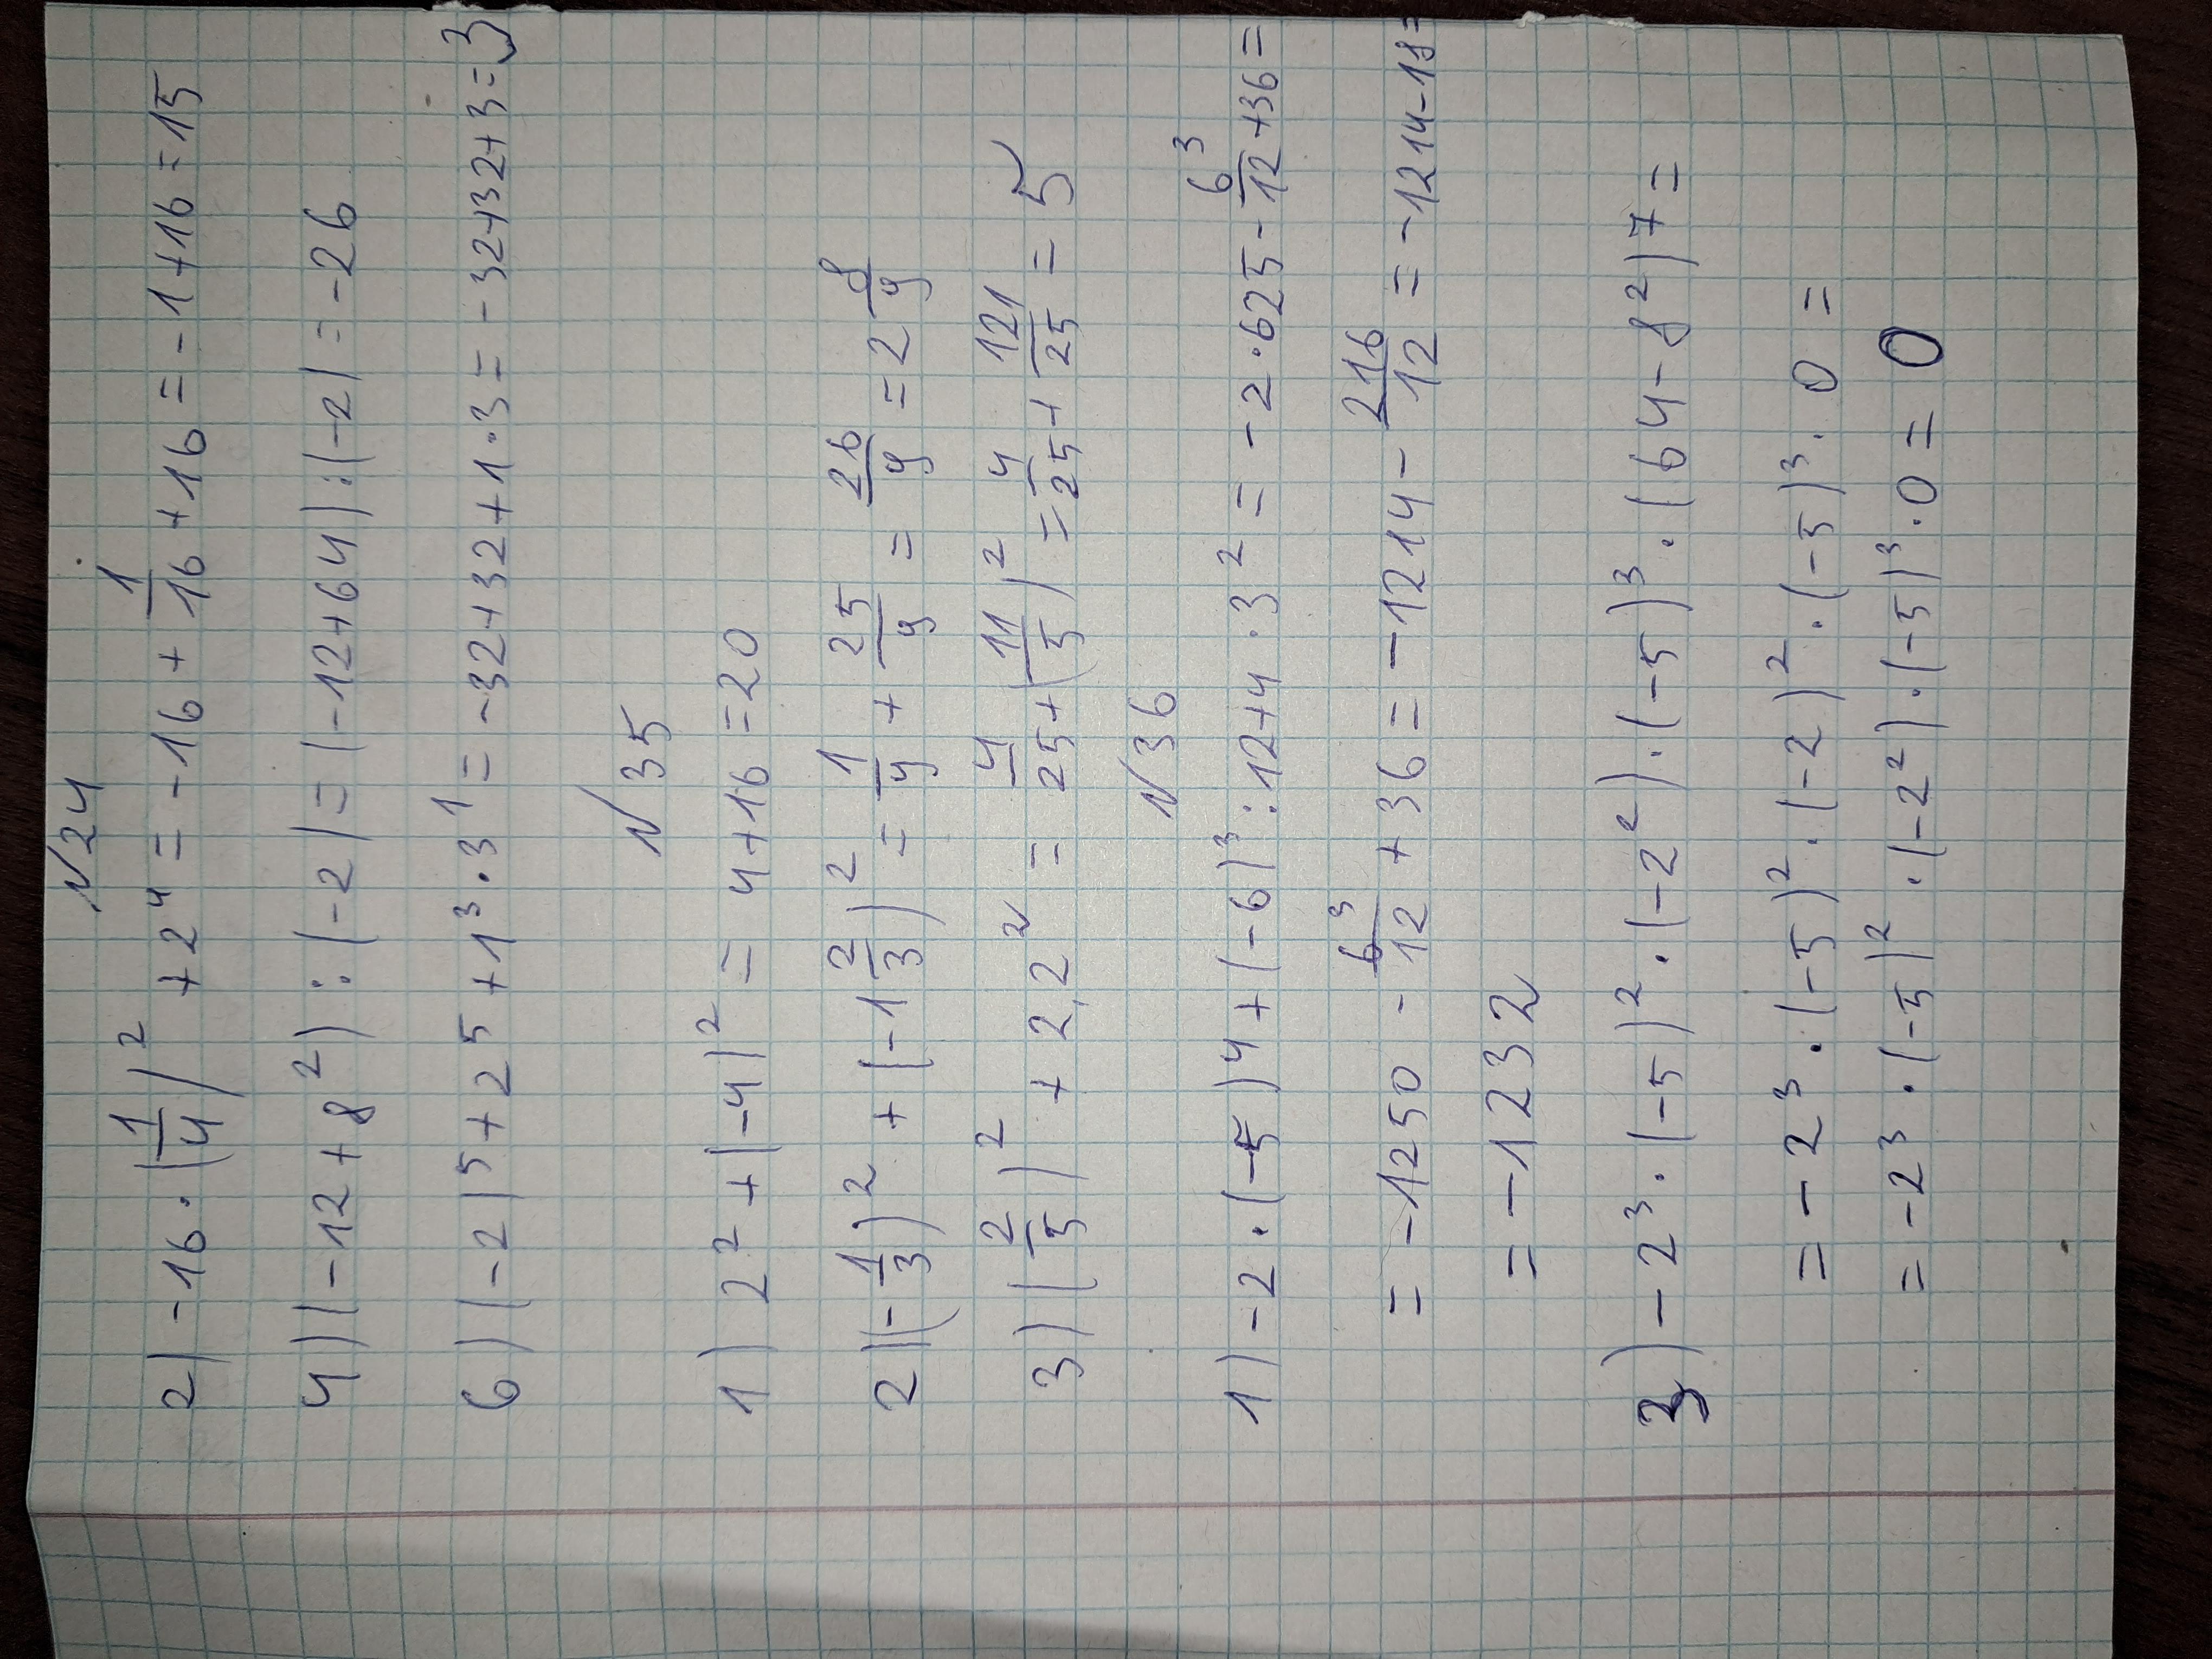 №24
2) -16·(1/4)² + 2⁴ = -16 + 1/16 + 16 = -1+16=15
4) (-12+8²):(-2) = (-12+64):(-2) = -26
6) (-2)⁵+2⁵+1³·3¹ = -32+32+1·3 = -32+32+3=3
№35
1) 2²+(-4)² = 4+16=20
2) (-1/3)² + (-1 2/3)² = 1/9 + 25/9 = 26/9 = 2 8/9
3) (2/5)² + 2,2² = 4/25+(11/5)² = 4/25+121/25 = 5
№36
1) -2·(-5)4+(-6)³:12+4·3² = -2·625-6³/12+36=
= -1250 - 6³/12 + 36 = -1214 - 216/12 = -1214-18=
= -1232
3) -2³·(-5)²·(-2²)·(-5)³·(64-8²)7=
= -2³·(-5)²·(-2)²·(-5)³·0=
= -2³·(-5)²·(-2²)·(-5)³·0=0